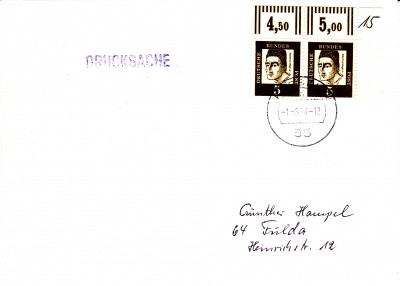 4,50 5,00 15
DRUCKSACHE
DEUTSCHE BUNDESPOST DEUTSCHE BUNDESPOST
5 5
-12
Günther Hampel
64 Fulda
Heinrichstr. 12